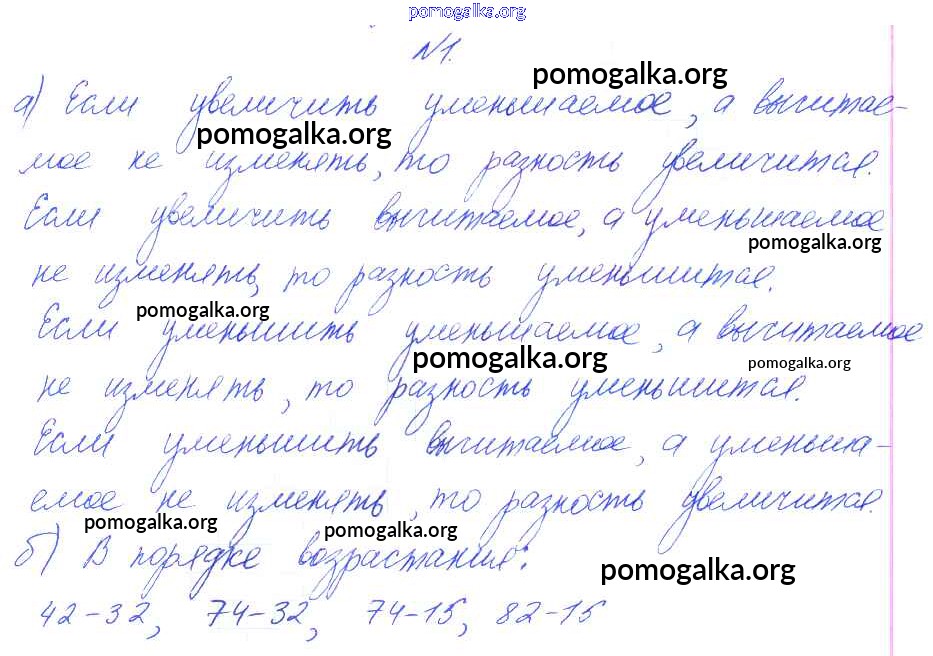 pomogalka.org
№1.
pomogalka.org
а) Если увеличить уменьшаемое, а вычитае-
pomogalka.org
мое не изменять, то разность увеличится.
Если увеличить вычитаемое, а уменьшаемое
pomogalka.org
не изменять, то разность уменьшится.
pomogalka.org
Если уменьшить уменьшаемое, а вычитаемое
pomogalka.org
pomogalka.org
не изменять, то разность уменьшится.
Если уменьшить вычитаемое, а уменьша-
емое не изменять, то разность увеличится.
pomogalka.org
pomogalka.org
б) В порядке возрастания:
pomogalka.org
42-32, 74-32, 74-15, 82-15